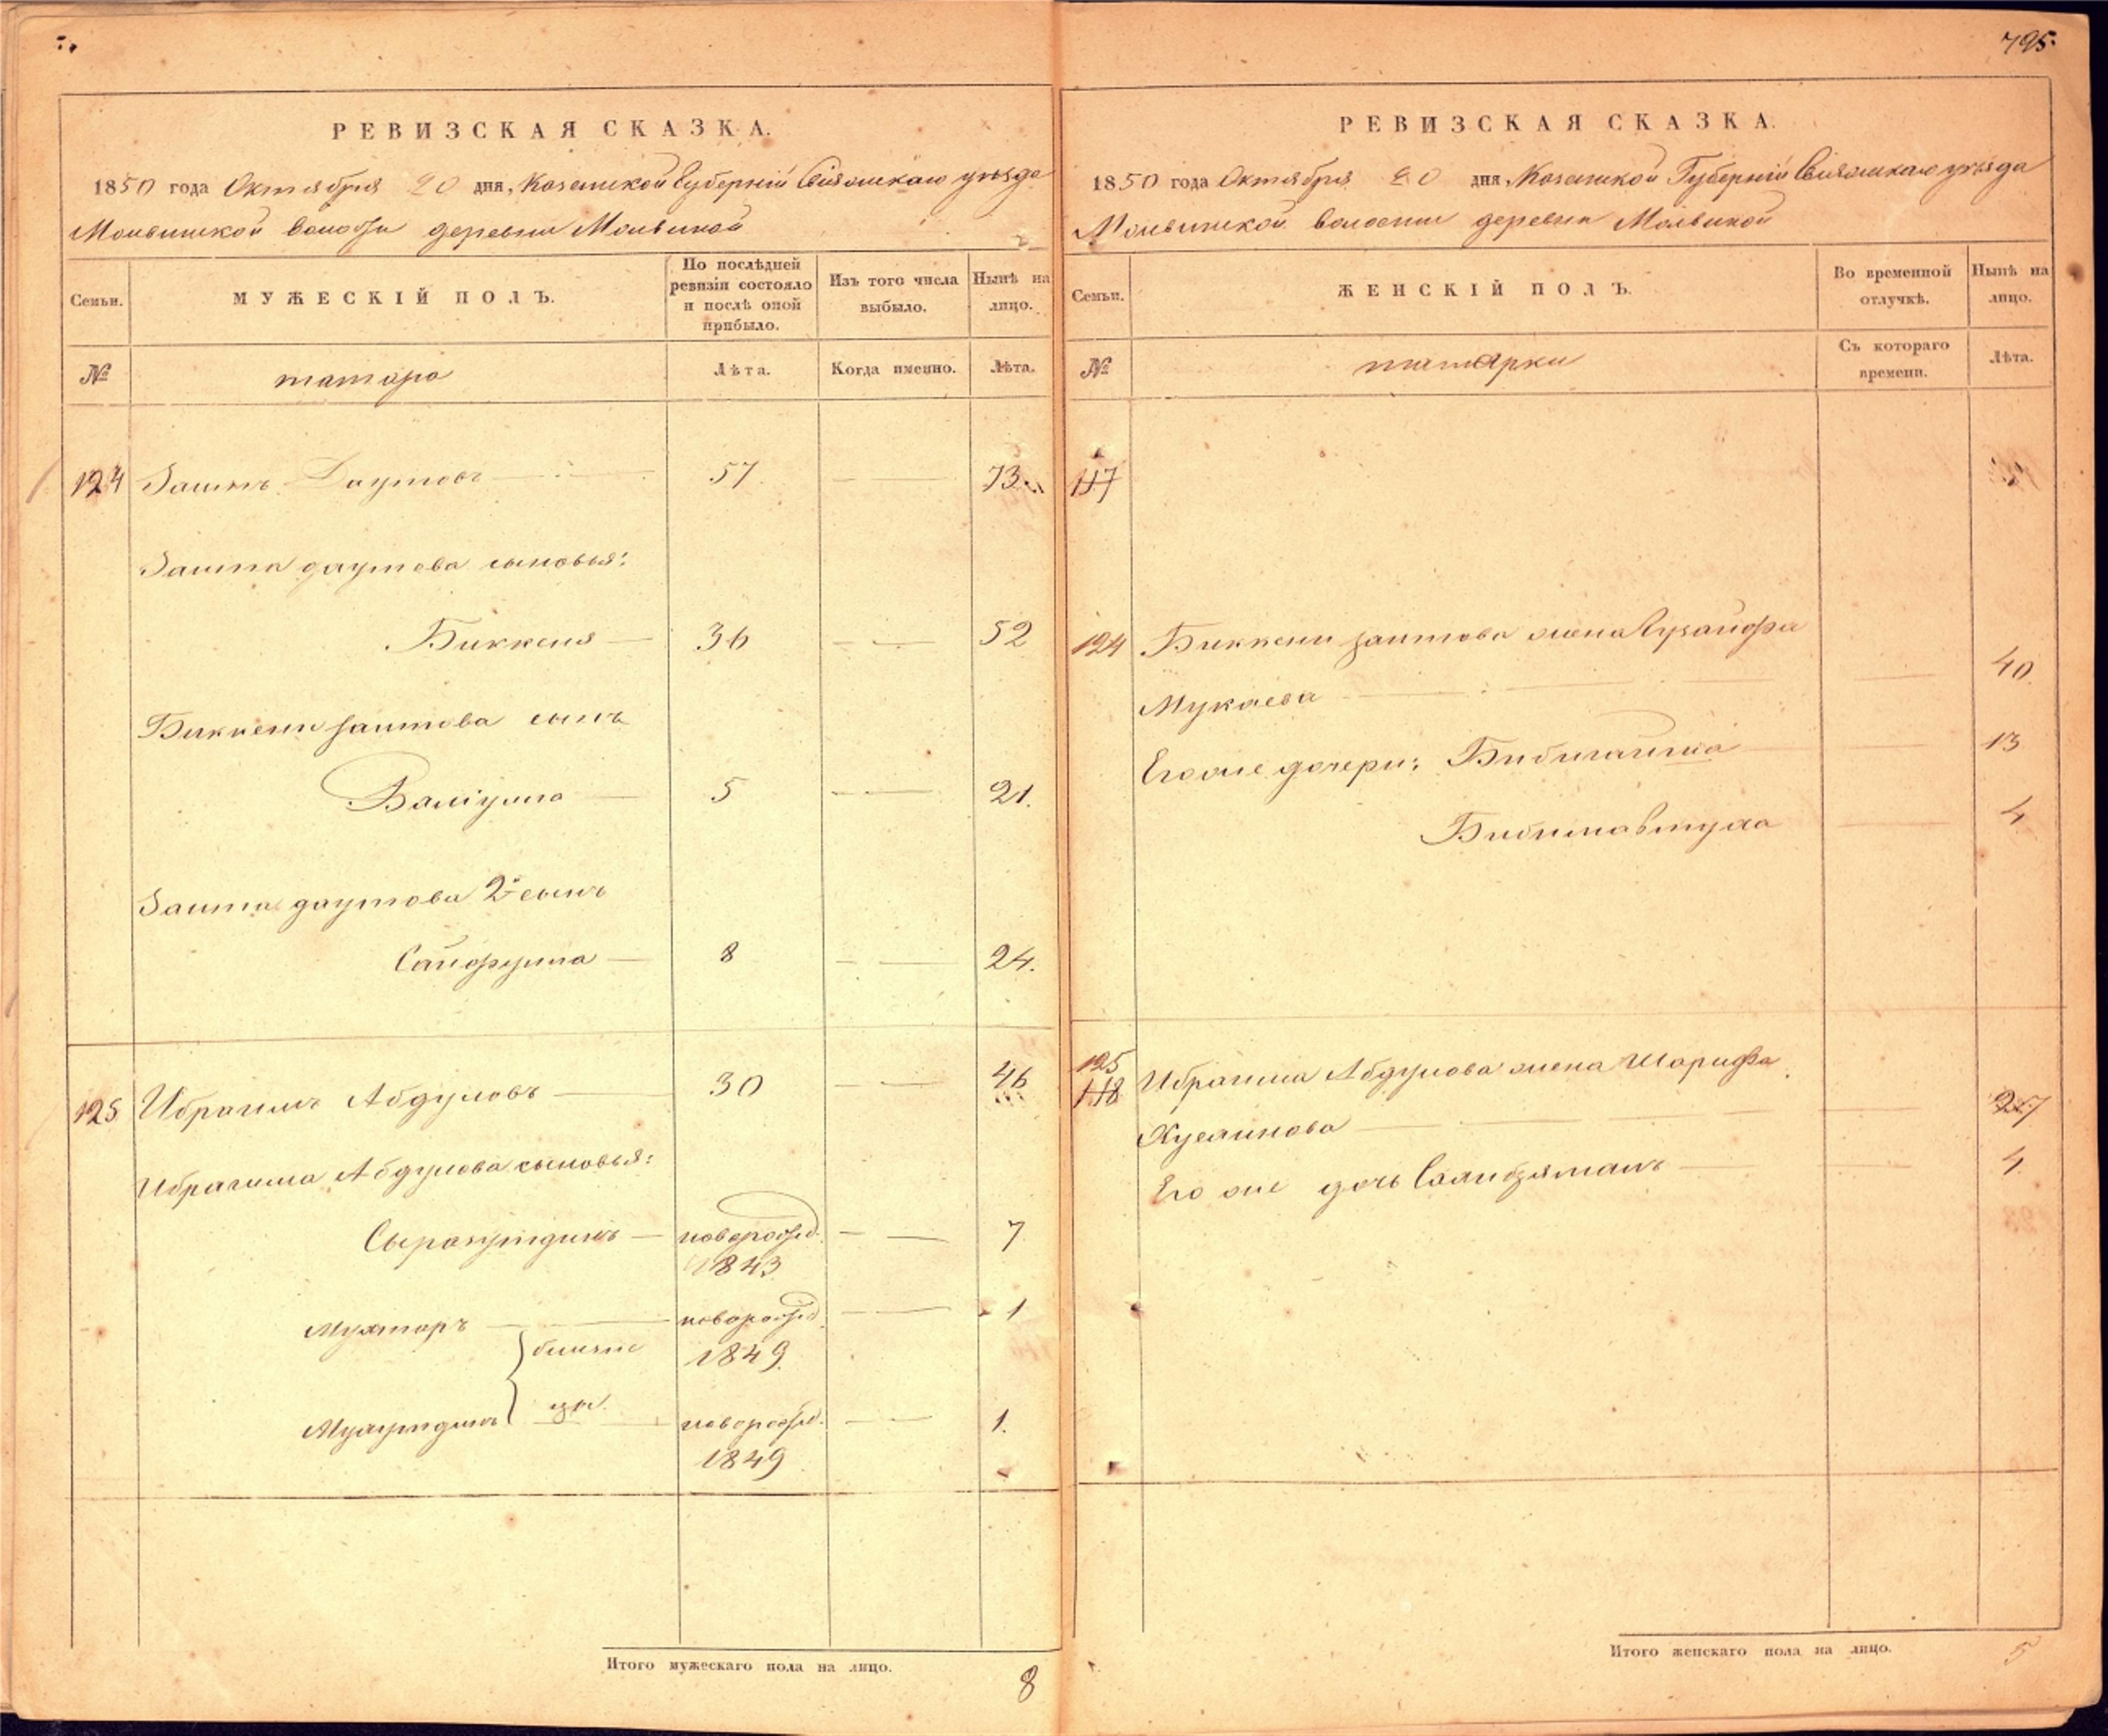 795.
РЕВИЗСКАЯ СКАЗКА.
1850 года Октября 20 дня, Казанской Губерніи Свіяжскаго уѣзда
Молвинской волости деревни Молвиной
Семьи.
МУЖЕСКІЙ ПОЛЪ.
По послѣдней ревизіи состояло и послѣ оной прибыло.
Изъ того числа выбыло.
Нынѣ на лицо.
№
татара
Лѣта.
Когда именно.
Лѣта.
124 Заитъ Даутовъ 57 73
Заита даутова сыновья:
Биккеня 36 52
Биккени заитова сынъ
Валіулла 5 21.
Заита даутова 2й сынъ
Сайфулла 8 24.
125 Ибрагимъ Абдуловъ 30 46
Ибрагима Абдулова сыновья:
новорожд. 7
1843
Мухтаръ новорожд. 1
близне
1849
цы
новорожд. 1.
1849
Итого мужескаго пола на лицо.
8
РЕВИЗСКАЯ СКАЗКА.
1850 года Октября 20 дня Казанской Губерніи Свіяжскаго уѣзда
Молвинской волости деревни Молвиной
Семьи.
ЖЕНСКІЙ ПОЛЪ.
Во временной отлучкѣ.
Нынѣ на лицо.
№
татарки
Съ котораго времени.
Лѣта.
117
124 Биккени заитова жена
Мукаева 40
Его же дочери: 13
4
125
118 Ибрагима Абдулова жена Шарифа
Хусаинова 27
Его же дочь 4
Итого женскаго пола на лицо.
5